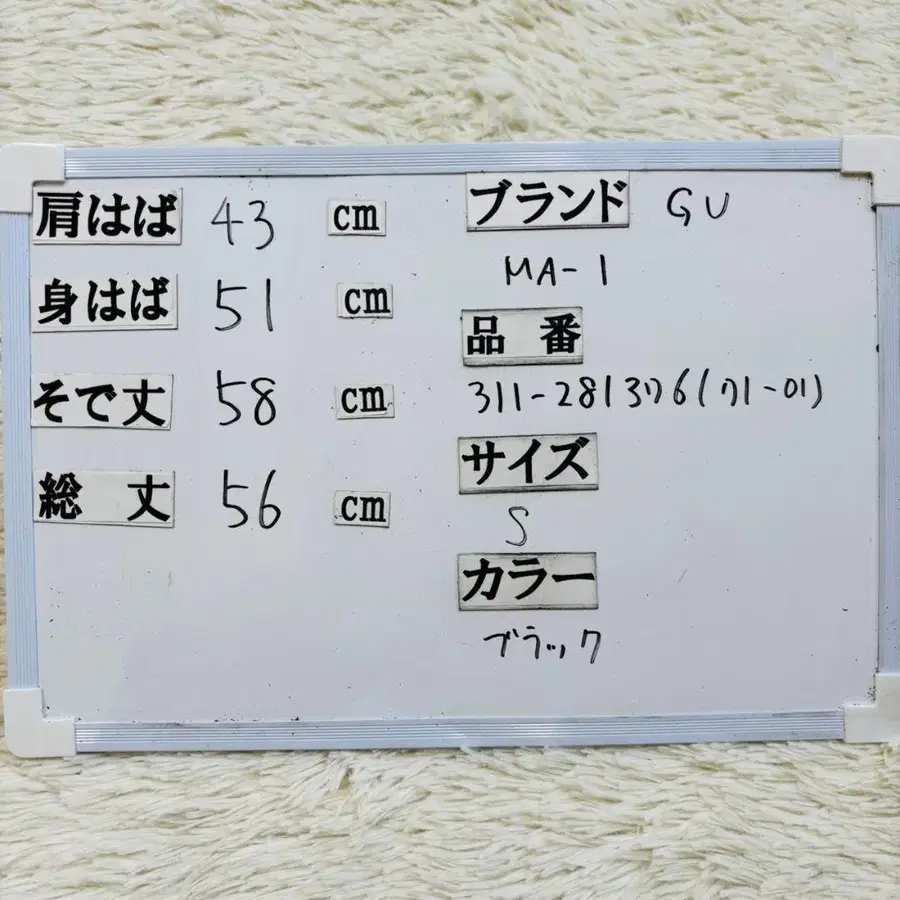 肩はば 43 cm
身はば 51 cm
そで丈 58 cm
総 丈 56 cm
ブランド GU
MA-1
品 番
311-281376(71-01)
サイズ
S
カラー
ブラック